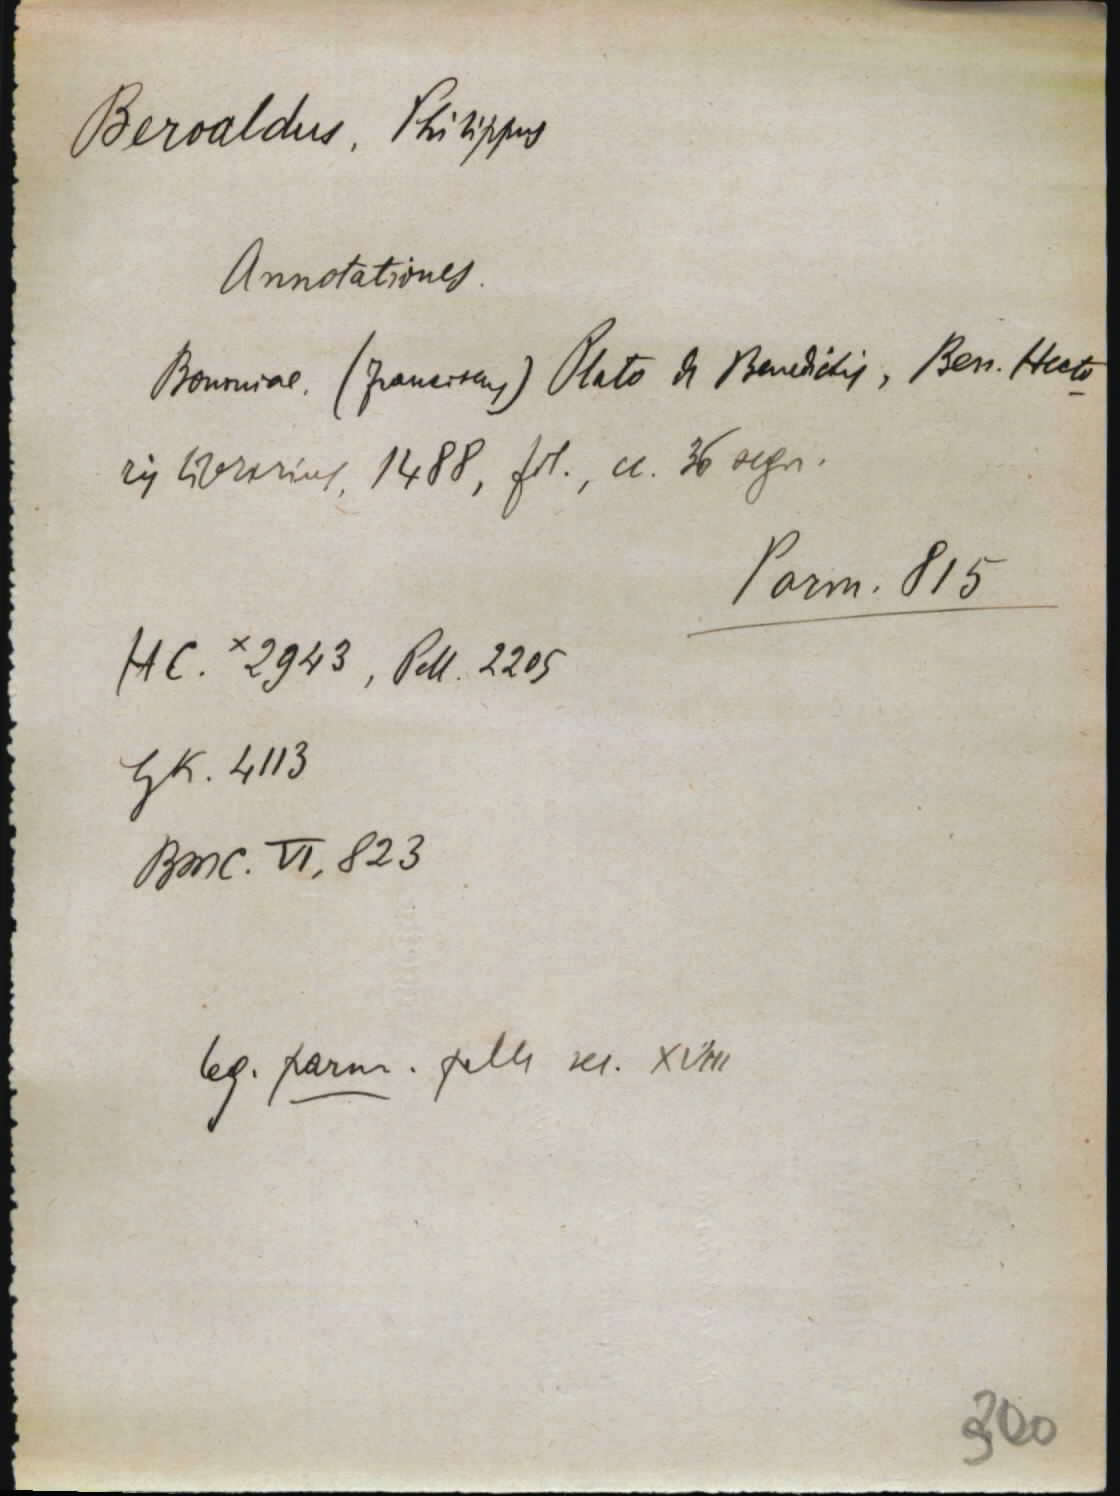 Beroaldus, Philippus
Annotationes.
Bononiae, (Franciscus) Plato de Benedictis, Ben. Hecto
ris librarius, 1488, fol., cc. 36 segn.
Parm. 815
HC. *2943, Pell. 2205
GK. 4113
BMC. VI, 823
leg. parm. pelle sec. XVIII
300